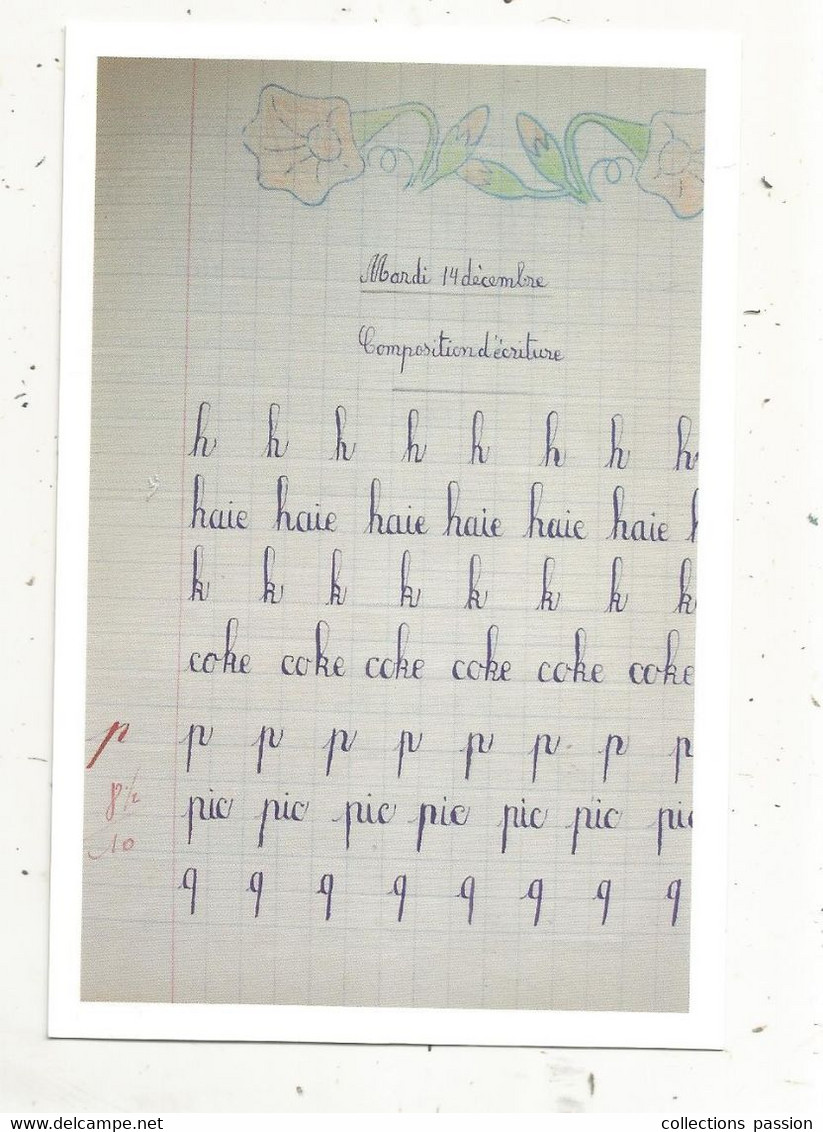 Mardi 14 décembre
Composition d'écriture
h h h h h h h h
haie haie haie haie haie haie h
k k k k k k k k
coke coke coke coke coke coke
p p p p p p p p
p
pic pic pic pic pic pic pic
8 1/2
10
q q q q q q q q
collections passion